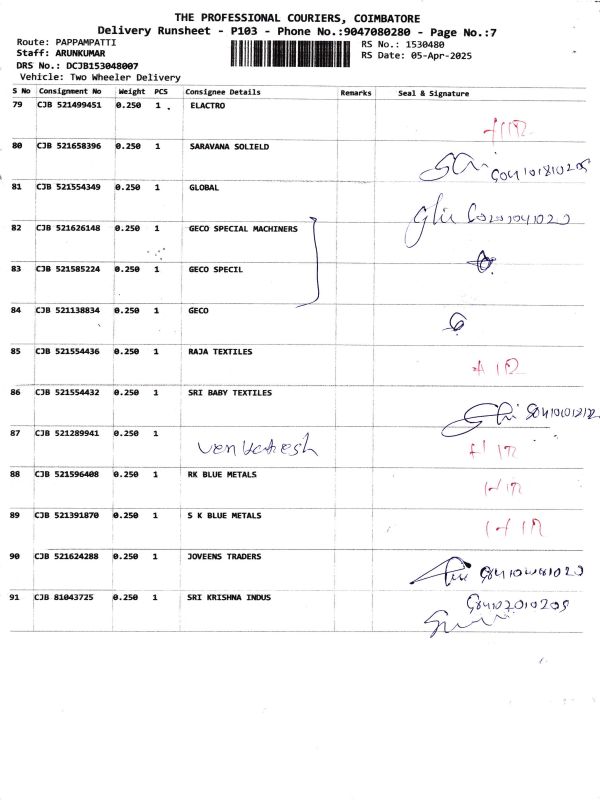 THE PROFESSIONAL COURIERS, COIMBATORE
Delivery Runsheet - P103 - Phone No.:9047080280 - Page No.:7
Route: PAPPAMPATTI
RS No.: 1530480
Staff: ARUNKUMAR
RS Date: 05-Apr-2025
DRS No.: DCJB153048007
Vehicle: Two Wheeler Delivery
S No Consignment No Weight PCS Consignee Details Remarks Seal & Signature
79 CJB 521499451 0.250 1 ELACTRO
80 CJB 521658396 0.250 1 SARAVANA SOLIELD
81 CJB 521554349 0.250 1 GLOBAL
82 CJB 521626148 0.250 1 GECO SPECIAL MACHINERS
83 CJB 521585224 0.250 1 GECO SPECIL
84 CJB 521138834 0.250 1 GECO
85 CJB 521554436 0.250 1 RAJA TEXTILES
86 CJB 521554432 0.250 1 SRI BABY TEXTILES
87 CJB 521289941 0.250 1 Venkatesh
88 CJB 521596408 0.250 1 RK BLUE METALS
89 CJB 521391870 0.250 1 S K BLUE METALS
90 CJB 521624288 0.250 1 JOVEENS TRADERS
91 CJB 81043725 0.250 1 SRI KRISHNA INDUS